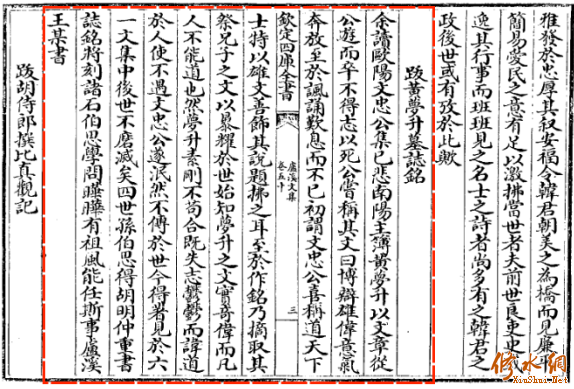 雅發於忠厚其叙安福令韓君朝美之為橋而見廉平
簡易愛民之意有足以激拂當世者夫前世良吏史
逸其行事而班班見之名士之詩者尚多有之韓君之
政後世或有攷於此歟
跋黃夢升墓誌銘
余讀歐陽文忠公集已悲南陽主簿黃夢升以文章從
公遊而卒不得志以死公嘗稱其文曰博辯雄偉意氣
奔放至於諷誦歎息而不已初謂文忠公喜稱道天下
欽定四庫全書
盧溪文集
卷五十
三
士持以雄文善飾其說題拂之耳至於作銘乃摘取其
祭兄子之文以暴耀於世始知夢升之文實奇偉而凡
人不能道也然夢升素剛不苟合既失志鬱鬱而諱道
於人使不遇文忠公遂泯然不傳於世今得著見於六
一文集中後世不磨滅矣四世孫伯思得胡明仲重書
誌銘將刻諸石伯思學問曄曄有祖風能任斯事盧溪
王某書
跋胡侍郎撰比真觀記
修水網
XiuShui.Net